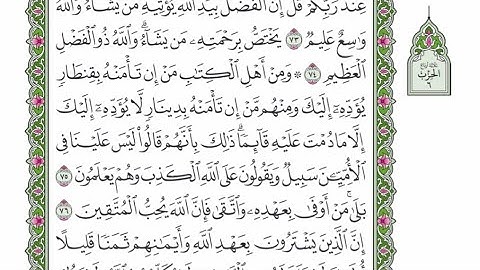 عِندَ رَبِّكُمْ قُلْ إِنَّ ٱلْفَضْلَ بِيَدِ ٱللَّهِ يُؤْتِيهِ مَن يَشَآءُ وَٱللَّهُ
وَٰسِعٌ عَلِيمٌ ٧٣ يَخْتَصُّ بِرَحْمَتِهِۦ مَن يَشَآءُ ۗ وَٱللَّهُ ذُو ٱلْفَضْلِ
ٱلْعَظِيمِ ٧٤ ۞ وَمِنْ أَهْلِ ٱلْكِتَٰبِ مَنْ إِن تَأْمَنْهُ بِقِنطَارٍ
يُؤَدِّهِۦٓ إِلَيْكَ وَمِنْهُم مَّنْ إِن تَأْمَنْهُ بِدِينَارٍ لَّا يُؤَدِّهِۦٓ إِلَيْكَ
إِلَّا مَا دُمْتَ عَلَيْهِ قَآئِمًا ۗ ذَٰلِكَ بِأَنَّهُمْ قَالُوا۟ لَيْسَ عَلَيْنَا فِى
ٱلْأُمِّيِّـۧنَ سَبِيلٌ وَيَقُولُونَ عَلَى ٱللَّهِ ٱلْكَذِبَ وَهُمْ يَعْلَمُونَ ٧٥
بَلَىٰ مَنْ أَوْفَىٰ بِعَهْدِهِۦ وَٱتَّقَىٰ فَإِنَّ ٱللَّهَ يُحِبُّ ٱلْمُتَّقِينَ ٧٦
إِنَّ ٱلَّذِينَ يَشْتَرُونَ بِعَهْدِ ٱللَّهِ وَأَيْمَٰنِهِمْ ثَمَنًا قَلِيلًا
الحزب
٦